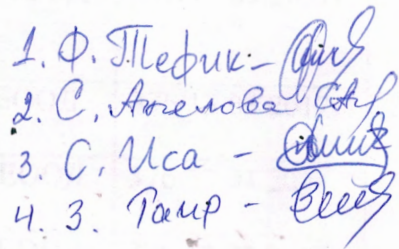 1. Ф. Тефик -
2. С. Ангелова
3. С. Иса -
4. З. Таир -